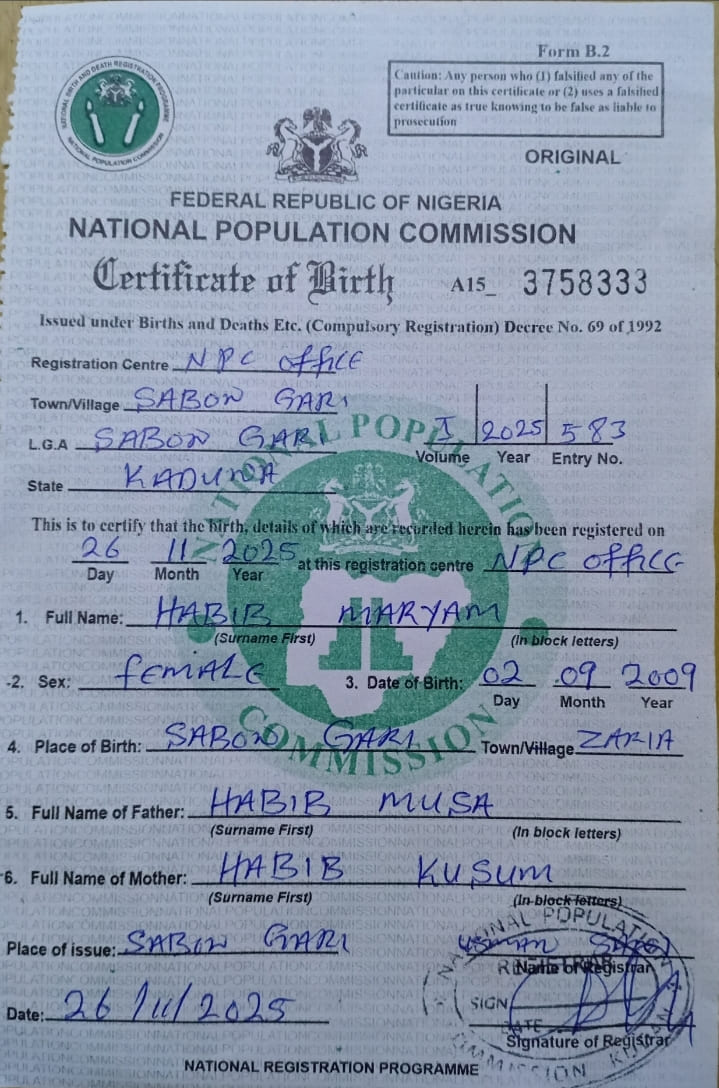 Form B.2
NATIONAL BIRTH AND DEATH REGISTRATION PROGRAMME
NATIONAL POPULATION COMMISSION
Caution: Any person who (1) falsified any of the
particular on this certificate or (2) uses a falsified
certificate as true knowing to be false as liable to
prosecution
ORIGINAL
FEDERAL REPUBLIC OF NIGERIA
NATIONAL POPULATION COMMISSION
Certificate of Birth A15_ 3758333
Issued under Births and Deaths Etc. (Compulsory Registration) Decree No. 69 of 1992
Registration Centre NPC OFFICE
Town/Village SABON GARI
L.G.A SABON GARI I 2025 583
Volume Year Entry No.
State KADUNA
NATIONAL POPULATION
This is to certify that the birth, details of which are recorded herein has been registered on
26 11 2025 at this registration centre NPC OFFICE
Day Month Year
1. Full Name: HABIB MARYAM
(Surname First) (in block letters)
2. Sex: FEMALE 3. Date of Birth: 02 09 2009
Day Month Year
COMMISSION
4. Place of Birth: SABON GARI Town/Village ZARIA
5. Full Name of Father: HABIB MUSA
(Surname First) (In block letters)
6. Full Name of Mother: HABIB KUSUM
(Surname First) (In block letters)
NATIONAL POPULATION
Place of issue: SABON GARI USMAN
REGISTRAR
Name of Registrar
SIGN
Date: 26/11/2025
DATE
Signature of Registrar
COMMISSION
NATIONAL REGISTRATION PROGRAMME